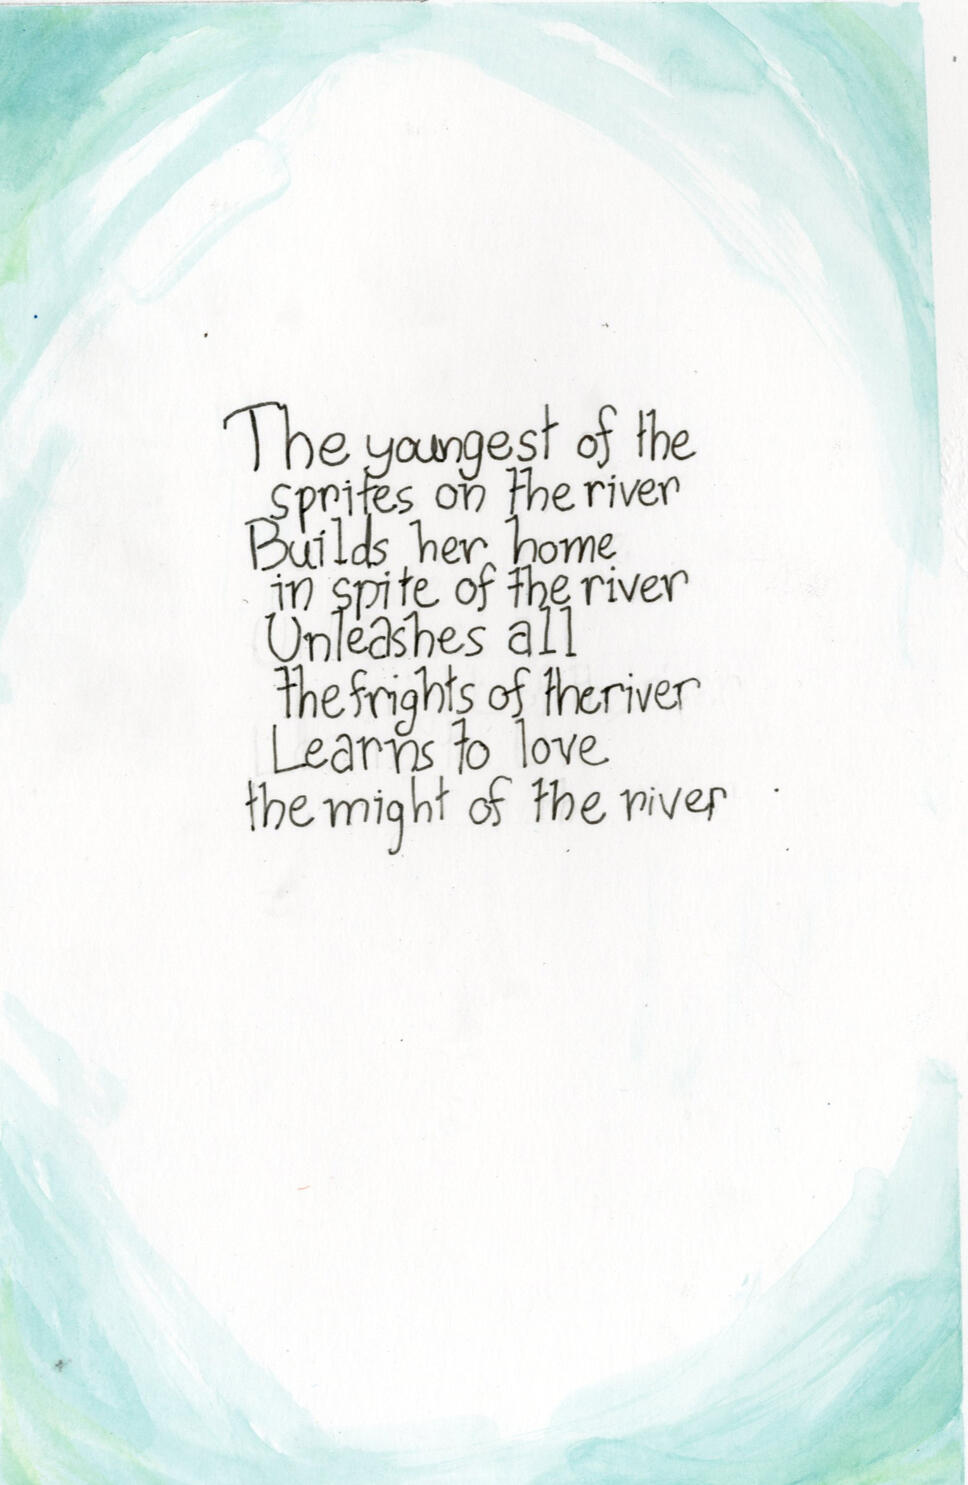 The youngest of the
sprites on the river
Builds her home
in spite of the river
Unleashes all
the frights of the river
Learns to love
the might of the river